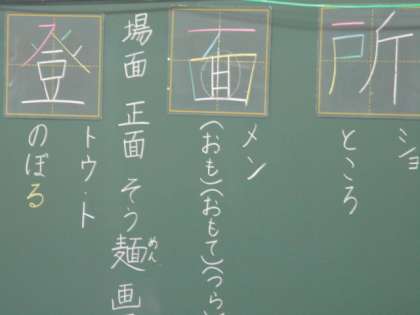 所
ショ
ところ
面
メン
(おも)(おもて)(つら
場面 正面 そう麺 画
めん
登
トウ・ト
のぼる